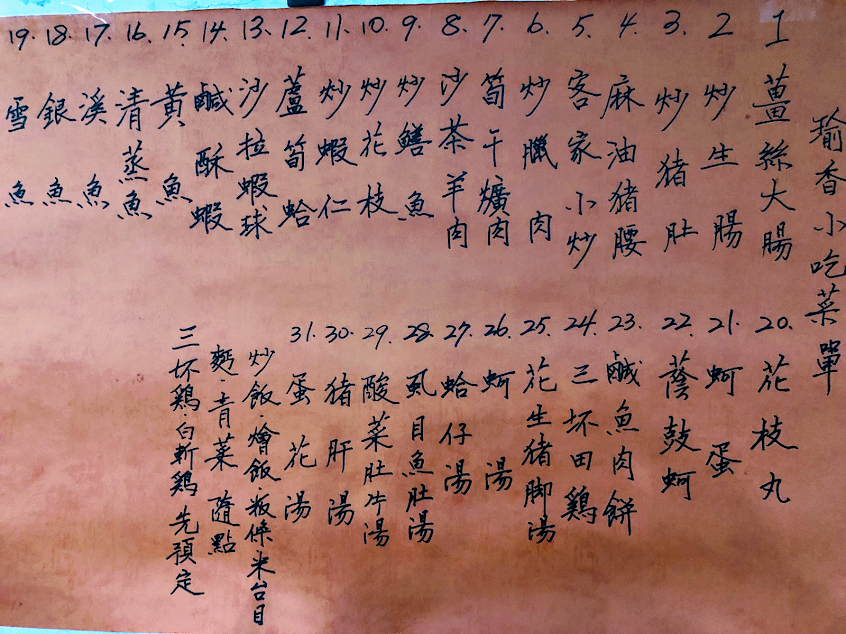 瑜香小吃菜單
1 薑絲大腸
2 炒生腸
3. 炒猪肚
4. 麻油猪腰
5. 客家小炒
6. 炒臘肉
7. 筍干爌肉
8. 沙茶羊肉
9. 炒鱔魚
10. 炒花枝
11. 炒蝦仁
12. 蘆筍蛤
13. 沙拉蝦球
14. 鹹酥蝦
15. 黃魚
16. 清蒸魚
17. 溪魚
18. 銀魚
19. 雪魚
20. 花枝丸
21. 蚵蛋
22. 蔭鼓蚵
23. 鹹魚肉餅
24. 三坏田鷄
25. 花生猪脚湯
26. 蚵湯
27. 蛤仔湯
28. 虱目魚肚湯
29. 酸菜肚片湯
30. 猪肝湯
31. 蛋花湯
炒飯·燴飯·粄條米台目
麪·青菜 隨點
三坏鷄·白斬鷄 先預定